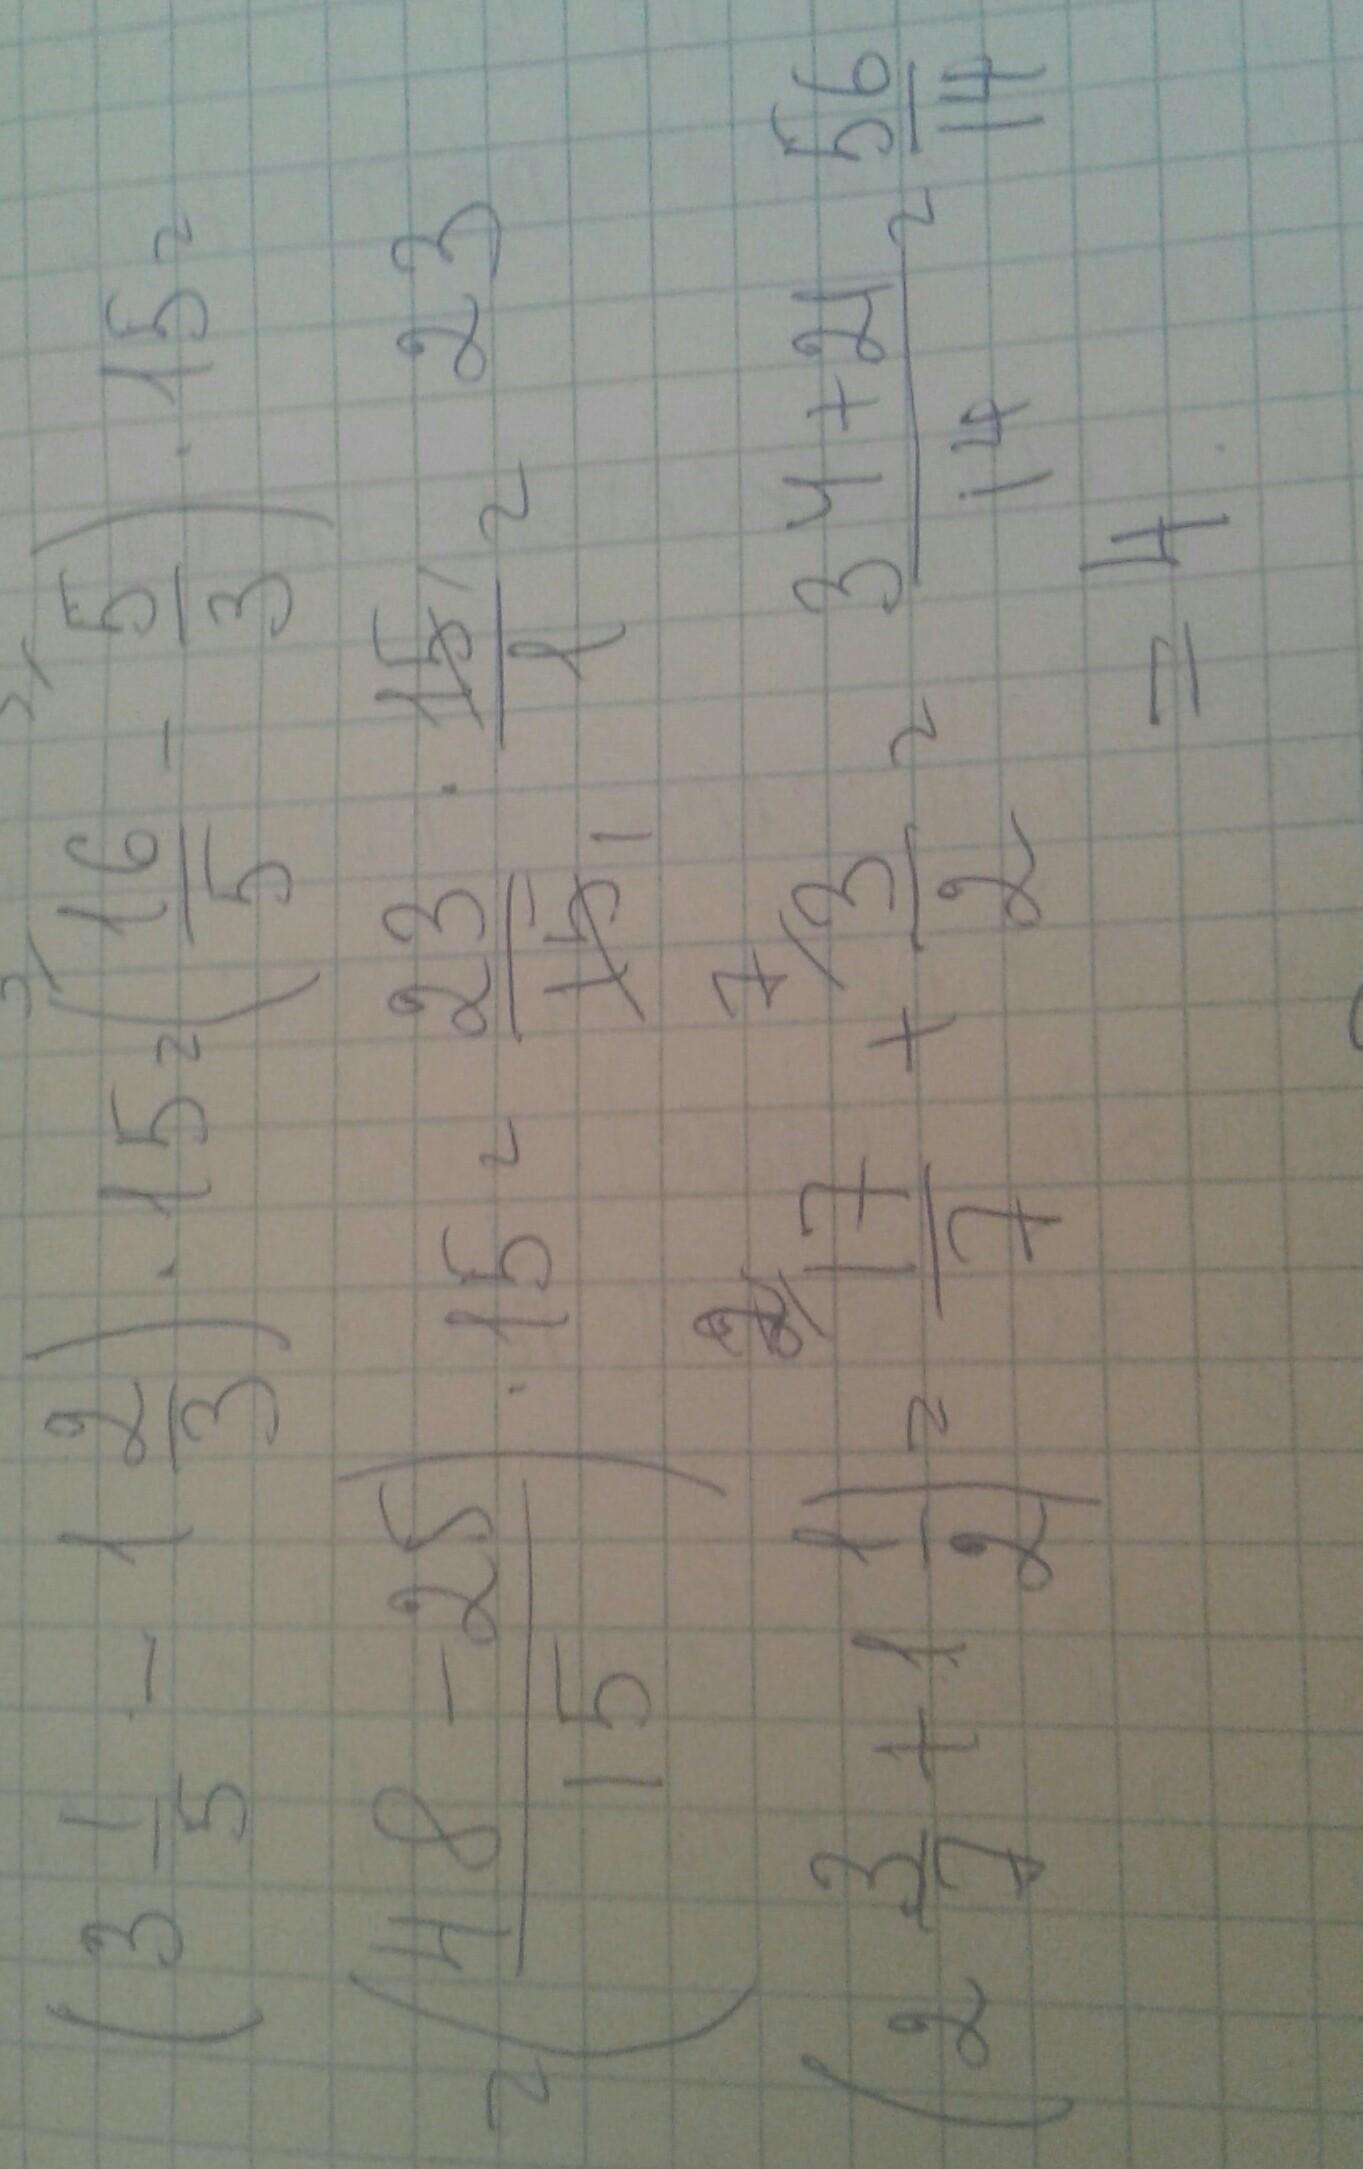 (3 1/5 - 1 2/3) · 15 = (3/ 16/5 - 5/ 5/3) · 15 =
= (48 - 25 / 15) · 15 = 23/15 1 · 15 1/1 = 23
(2 3/7 + 1 1/2) = 2/ 17/7 + 7/ 3/2 = 34+21 / 14 = 56/14
= 4